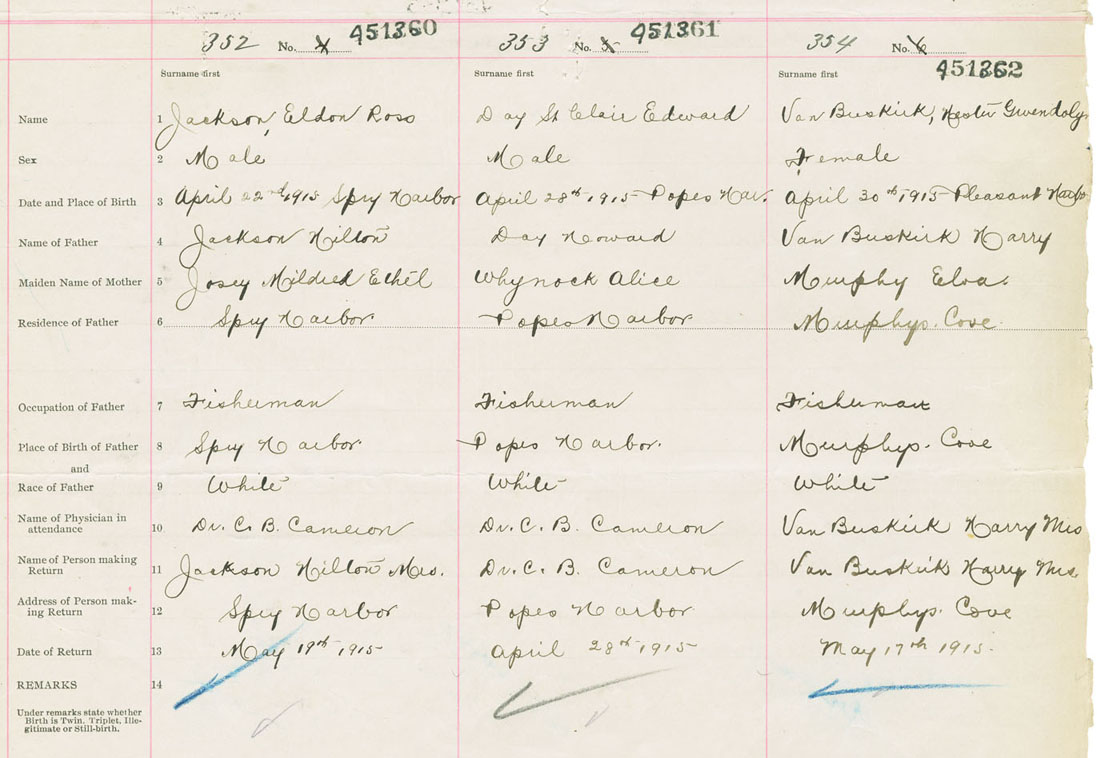 352 No. 4 451360 353 No. 5 451361 354 No. 6 451362
Surname first Surname first Surname first
Name 1 Jackson, Eldon Ross Day St Clair Edward Van Buskirk, Hester Gwendolyn
Sex 2 Male Male Female
Date and Place of Birth 3 April 22nd 1915 Spry Harbor April 28th 1915 Popes Har. April 30th 1915 Pleasant Harbor
Name of Father 4 Jackson Hilton Day Howard Van Buskirk Harry
Maiden Name of Mother 5 Josey Mildred Ethel Whynock Alice Murphy Elva.
Residence of Father 6 Spry Harbor. Popes Harbor Murphys. Cove.
Occupation of Father 7 Fisherman Fisherman Fisherman
Place of Birth of Father 8 Spry Harbor. Popes Harbor. Murphys. Cove
and
Race of Father 9 White White White
Name of Physician in
attendance 10 Dr. C. B. Cameron Dr. C. B. Cameron Van Buskirk Harry Mrs
Name of Person making
Return 11 Jackson Hilton Mrs. Dr. C. B. Cameron Van Buskirk Harry Mrs.
Address of Person mak-
ing Return 12 Spry Harbor Popes Harbor Murphys. Cove
Date of Return 13 May 19th 1915 April 28th 1915 May 17th 1915.
REMARKS 14
Under remarks state whether
Birth is Twin. Triplet, Ille-
gitimate or Still-birth.